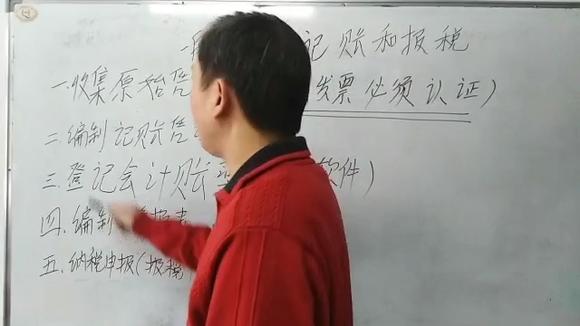 一 记账和报税
一.收集原始凭 发票必须认证)
二.编制记账凭
三.登记会计账 软件)
四.编制 报表
五.纳税申报(报税